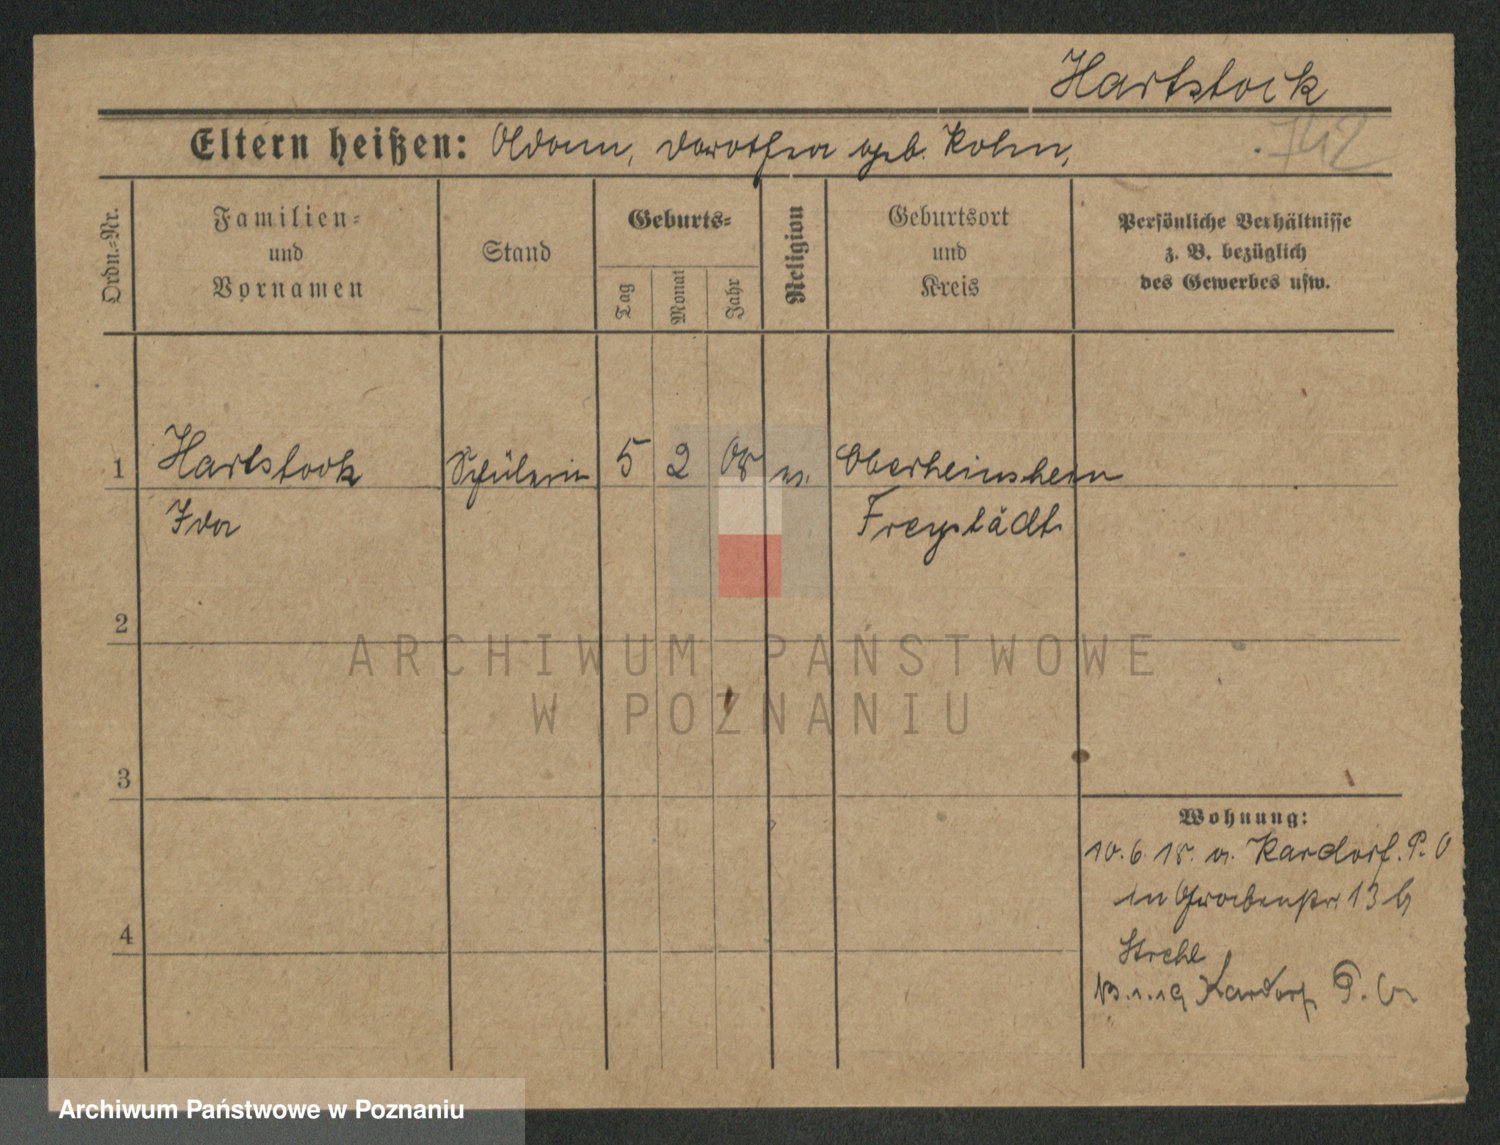 Hartstock
Eltern heißen: Adam, Dorothea geb. Kohn,
742
Ordn.=Nr.
Familien=
und
Vornamen
Stand
Geburts=
Tag
Monat
Jahr
Religion
Geburtsort
und
Kreis
Persönliche Verhältnisse
z. B. bezüglich
des Gewerbes usw.
1 Hartstock Schülerin 5 2 08
Ida Freystädt
2
3
4
ARCHIWUM PAŃSTWOWE
W POZNANIU
Wohnung:
10. 6. 18. Kardorf. P. O
in Grabenstr. 13
Strehl
Kardorf P.
Archiwum Państwowe w Poznaniu